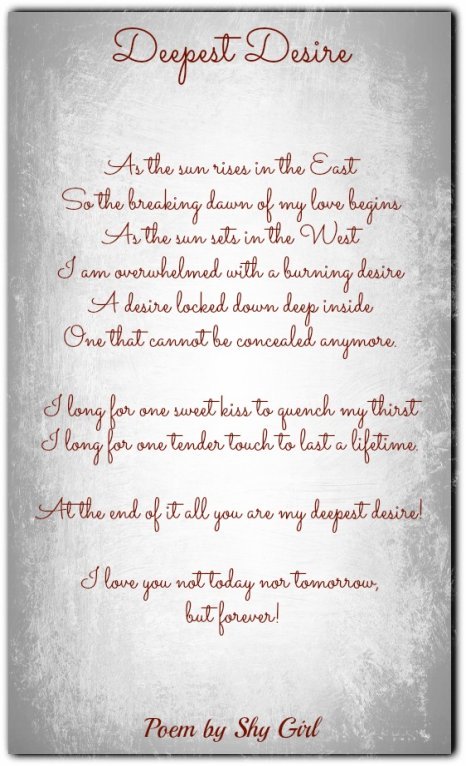 Deepest Desire
As the sun rises in the East
So the breaking dawn of my love begins
As the sun sets in the West
I am overwhelmed with a burning desire
A desire locked down deep inside
One that cannot be concealed anymore.
I long for one sweet kiss to quench my thirst
I long for one tender touch to last a lifetime.
At the end of it all you are my deepest desire!
I love you not today nor tomorrow,
but forever!
Poem by Shy Girl